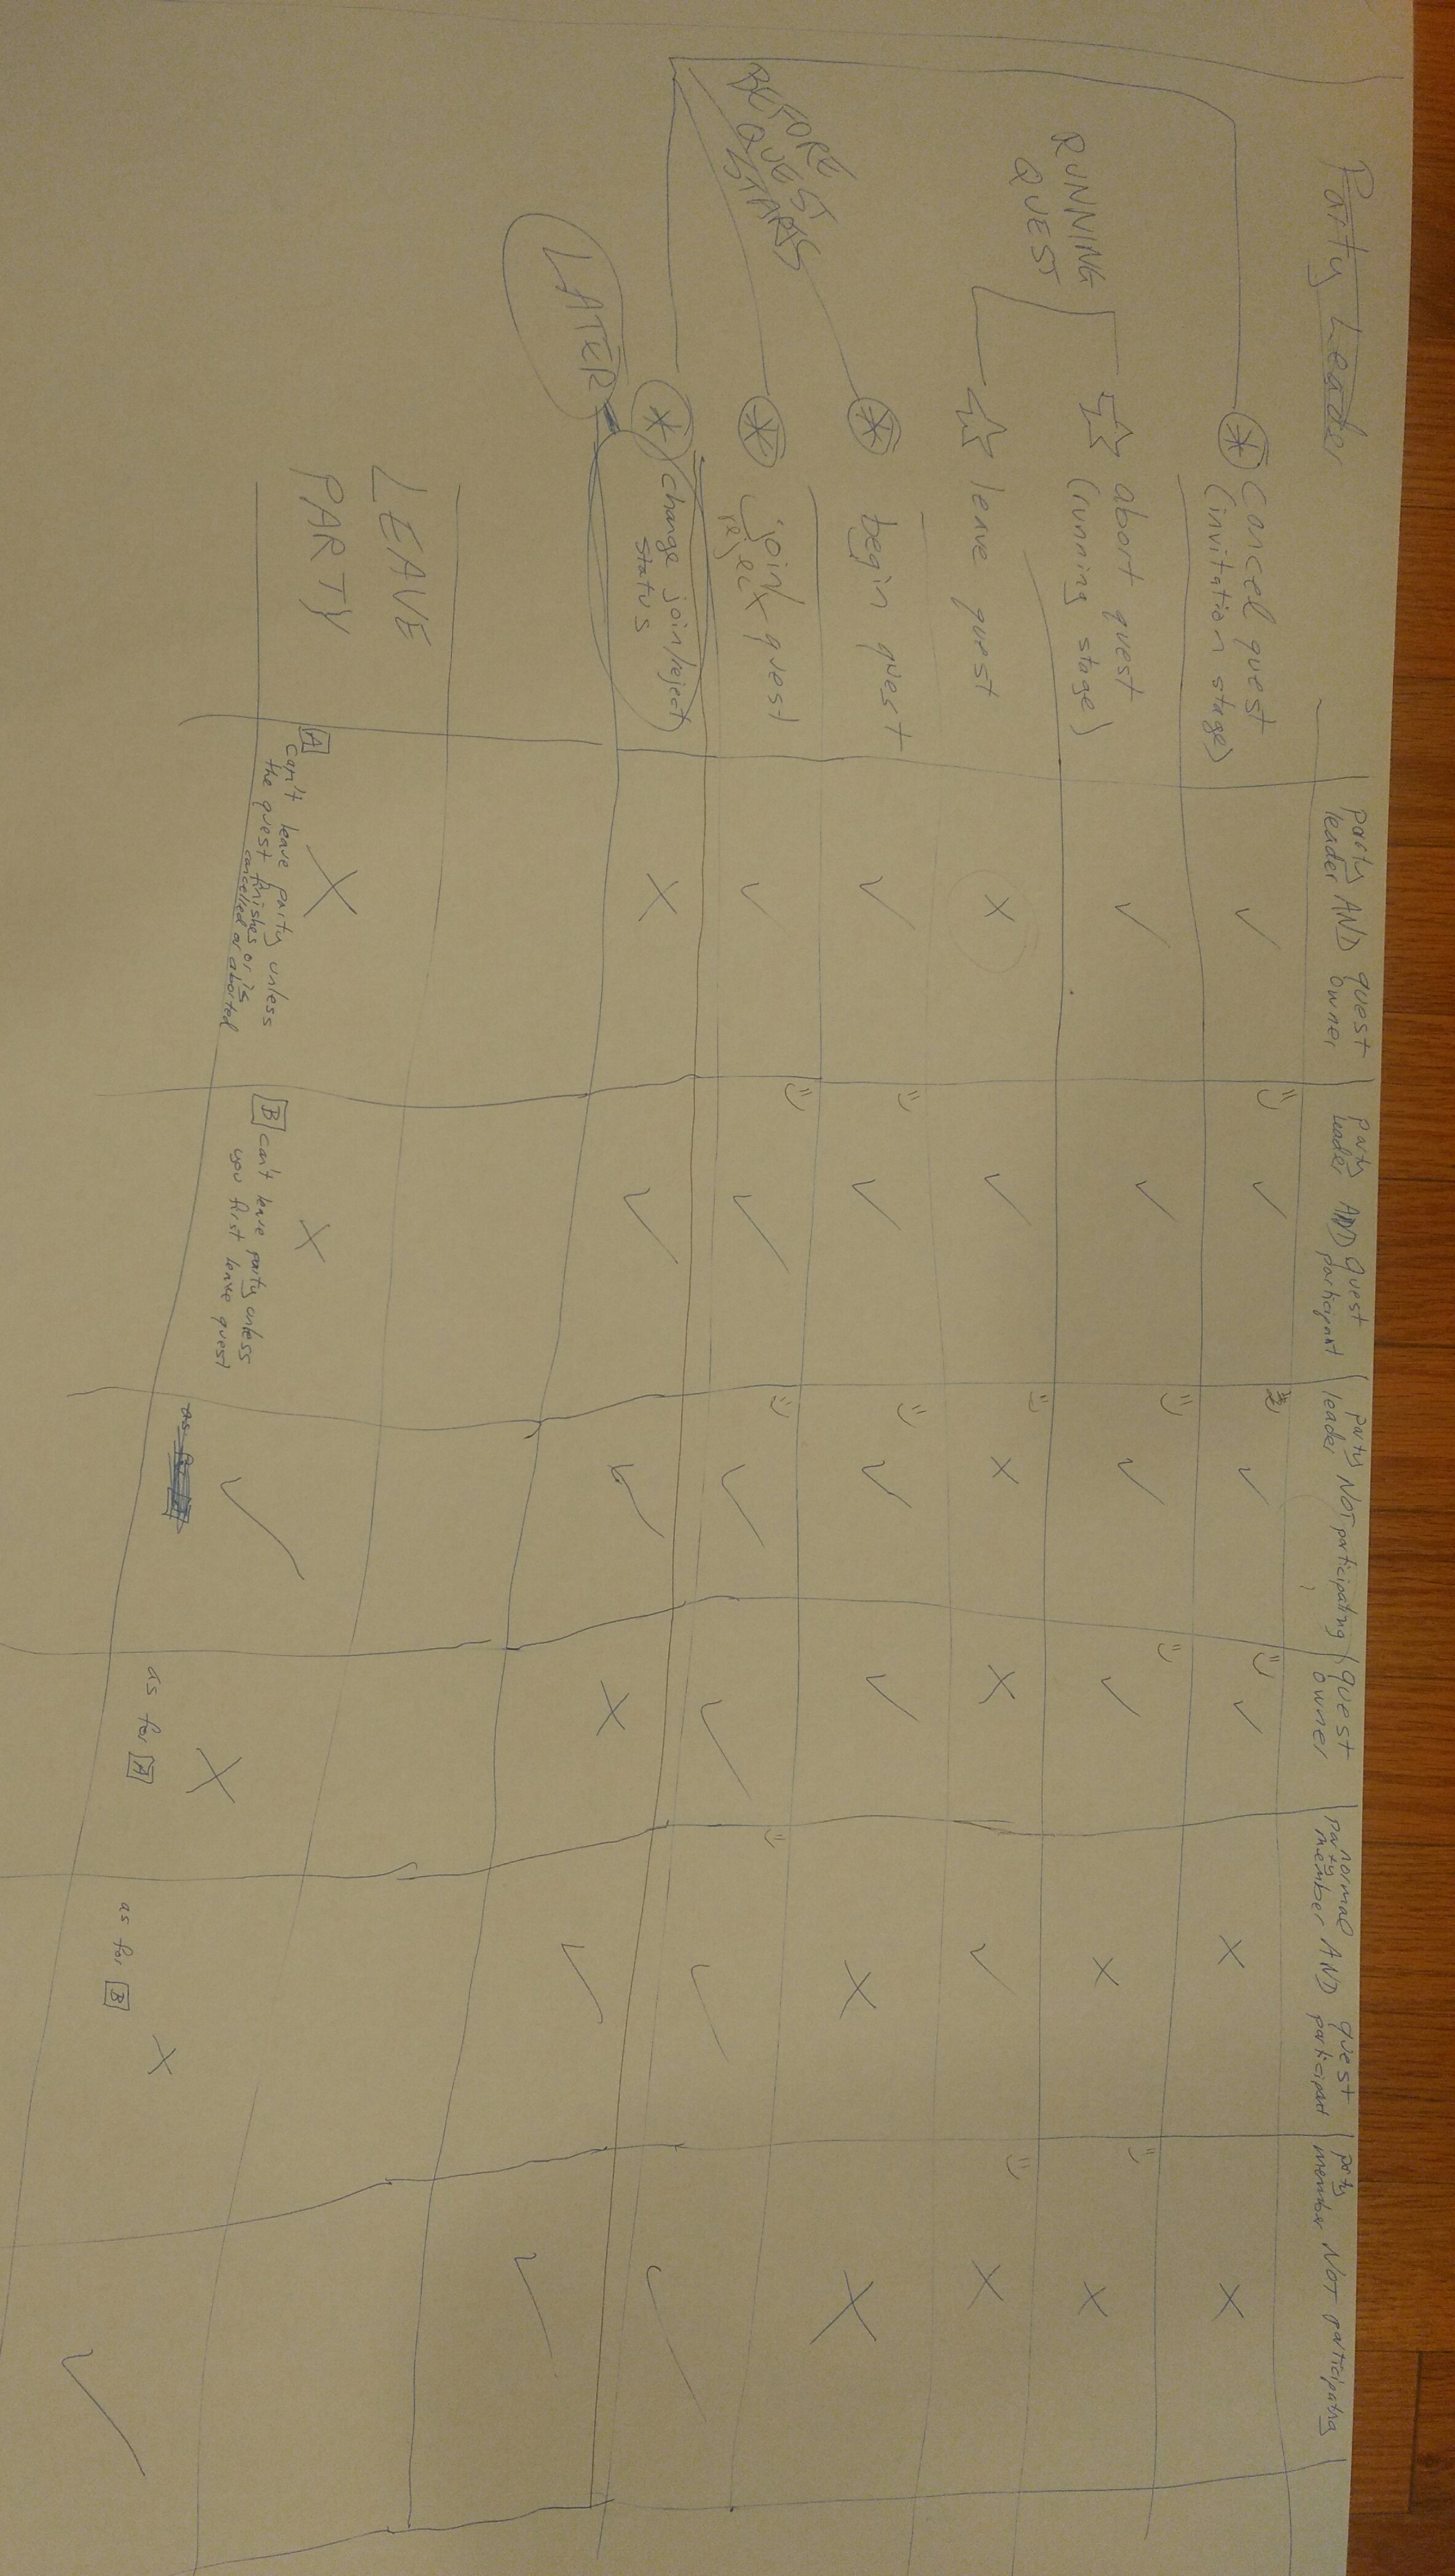 Party Leader
party leader AND quest owner
party leader AND quest participant
party leader NOT participating
quest owner
normal party member AND quest participant
party member NOT participating
cancel quest
(invitation stage)
✓ ✓ ✓ ✓ X X
RUNNING
QUEST
abort quest
(running stage)
✓ ✓ ✓ ✓ X X
leave quest
X ✓ X X ✓ X
BEFORE
QUEST
STARTS
begin quest
✓ ✓ ✓ ✓ X X
join/
reject quest
✓ ✓ ✓ ✓ ✓ ✓
LATER
change join/reject
status
X ✓ ✓ X ✓ ✓
LEAVE
PARTY
X X ✓ X X ✓
A can't leave party unless
the quest finishes or is
cancelled or aborted
B can't leave party unless
you first leave quest
as for A
as for B